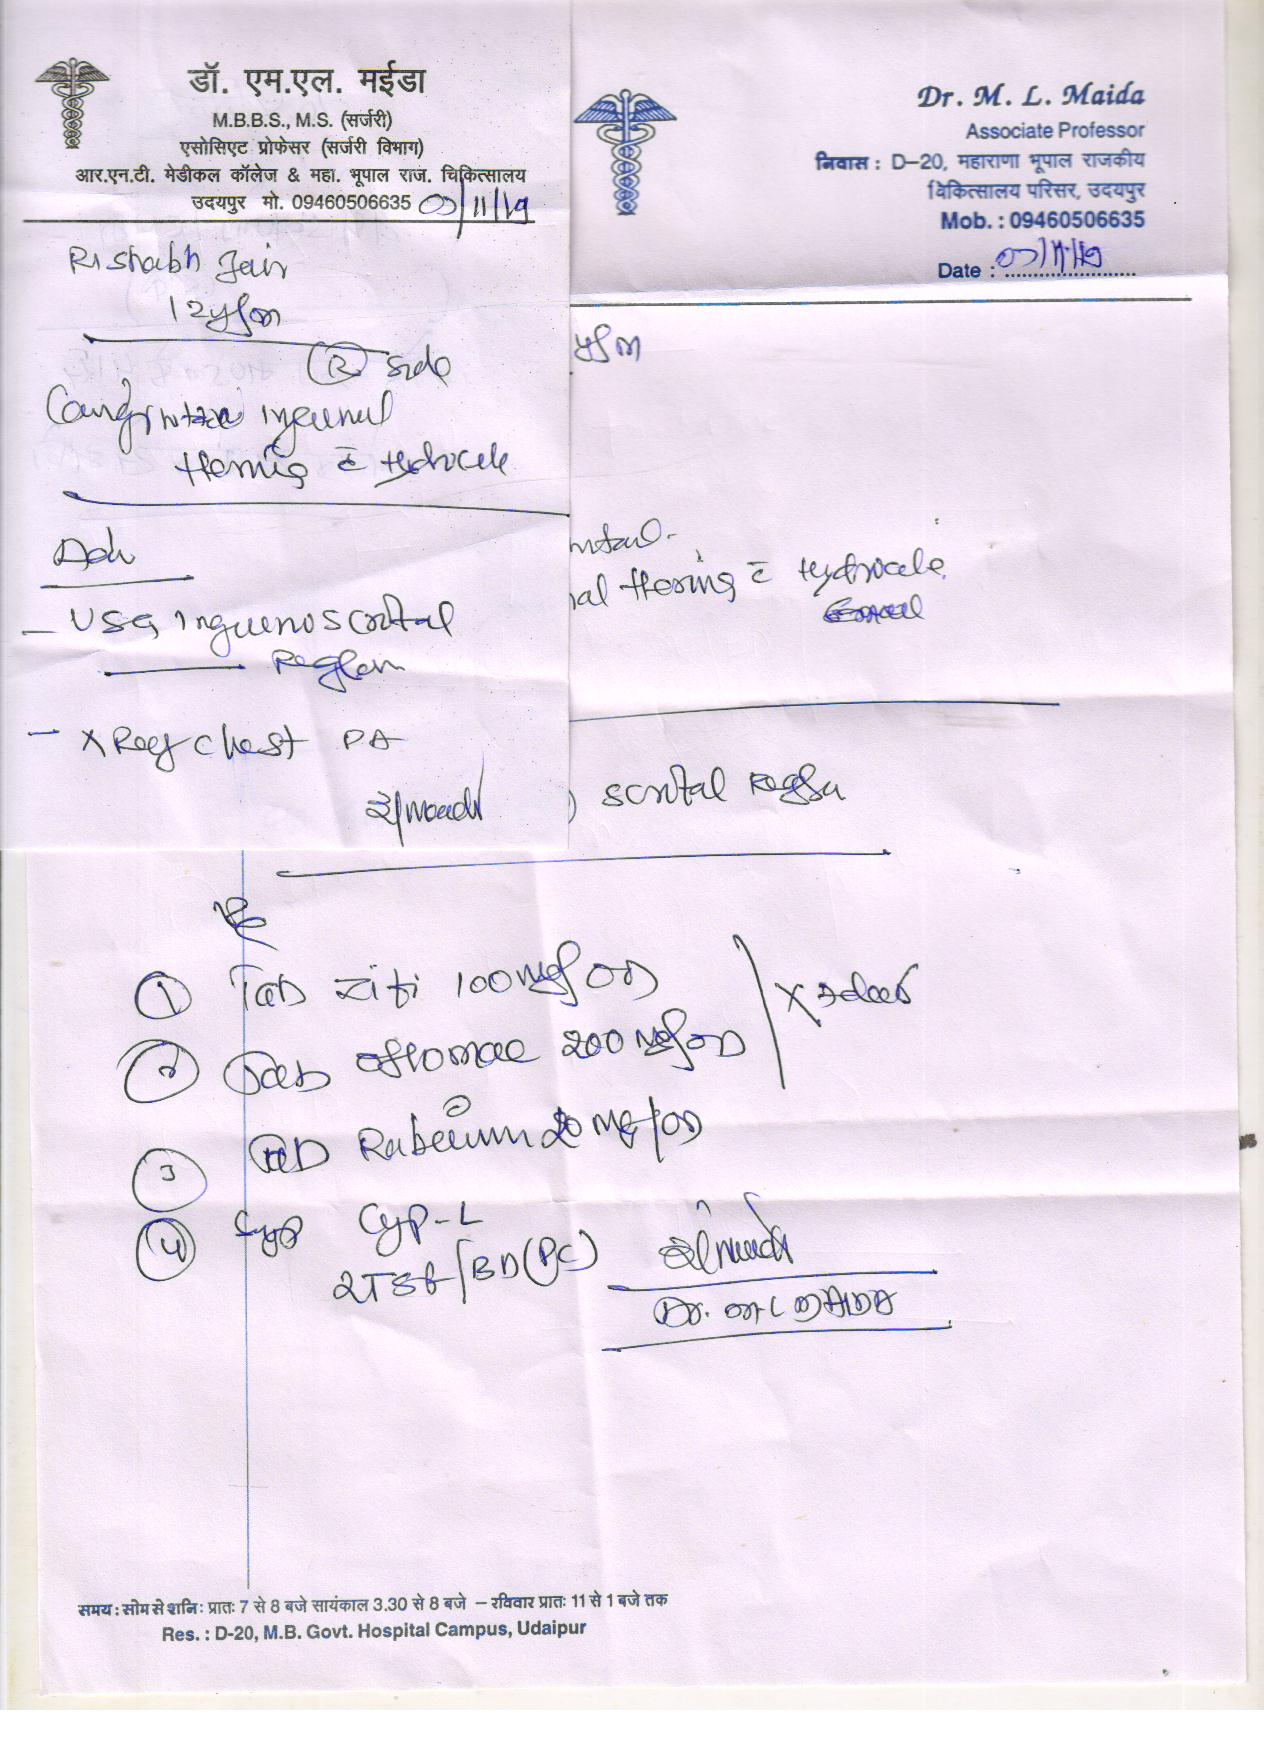 डॉ. एम.एल. मईडा
M.B.B.S., M.S. (सर्जरी)
एसोसिएट प्रोफेसर (सर्जरी विभाग)
आर.एन.टी. मेडीकल कॉलेज & महा. भूपाल राज. चिकित्सालय
उदयपुर मो. 09460506635
Rishabh Jain
12y/m
(R) side
Congenital inguinal
Hernia c̄ Hydrocele
Adv
- USG Inguinoscrotal
Region
- X Ray chest PA
Dr. M. L. Maida
Associate Professor
निवास : D-20, महाराणा भूपाल राजकीय
चिकित्सालय परिसर, उदयपुर
Mob. : 09460506635
Date :
y/m
nital
nal Hernia c̄ Hydrocele
) scrotal Region
① Tab Zifi 100 mg/OD
② Tab oflomac 200 mg/OD
③ Tab Rabeium 20 mg/OD
④ Syp Cyp-L
2TSF/BD (PC)
Dr. ML MAIDA
समय : सोम से शनि: प्रातः 7 से 8 बजे सायंकाल 3.30 से 8 बजे – रविवार प्रातः 11 से 1 बजे तक
Res. : D-20, M.B. Govt. Hospital Campus, Udaipur